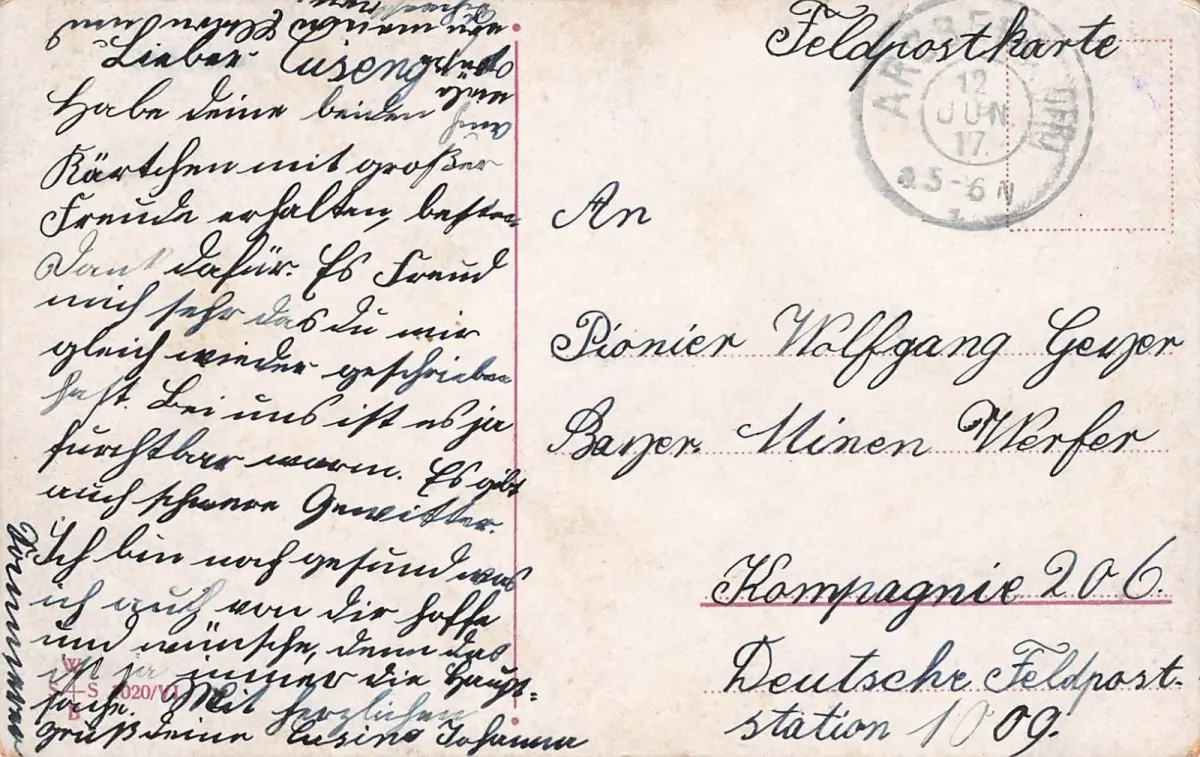 Lieber Cuseng
Habe deine beiden
Kärtchen mit großer
Freude erhalten, besten
Dank dafür. Es Freud
mich sehr das du mir
gleich wieder geschrieben
hast. Bei uns ist es ja
furchtbar warm. Es gibt
auch schwere Gewitter.
Ich bin noch gesund was
ich auch von dir hoffe
und wünsche, denn das
ist ja immer die Haupt-
sache. Mit herzlichen
Gruß deine Cusine Johanna
W
S S
B
2020/VI
Feldpostkarte
12
JUN
17.
5-6 N
An
Pionier Wolfgang Geyer
Bayer. Minen Werfer
Kompagnie 206.
Deutsche Feldpost-
station 1009.